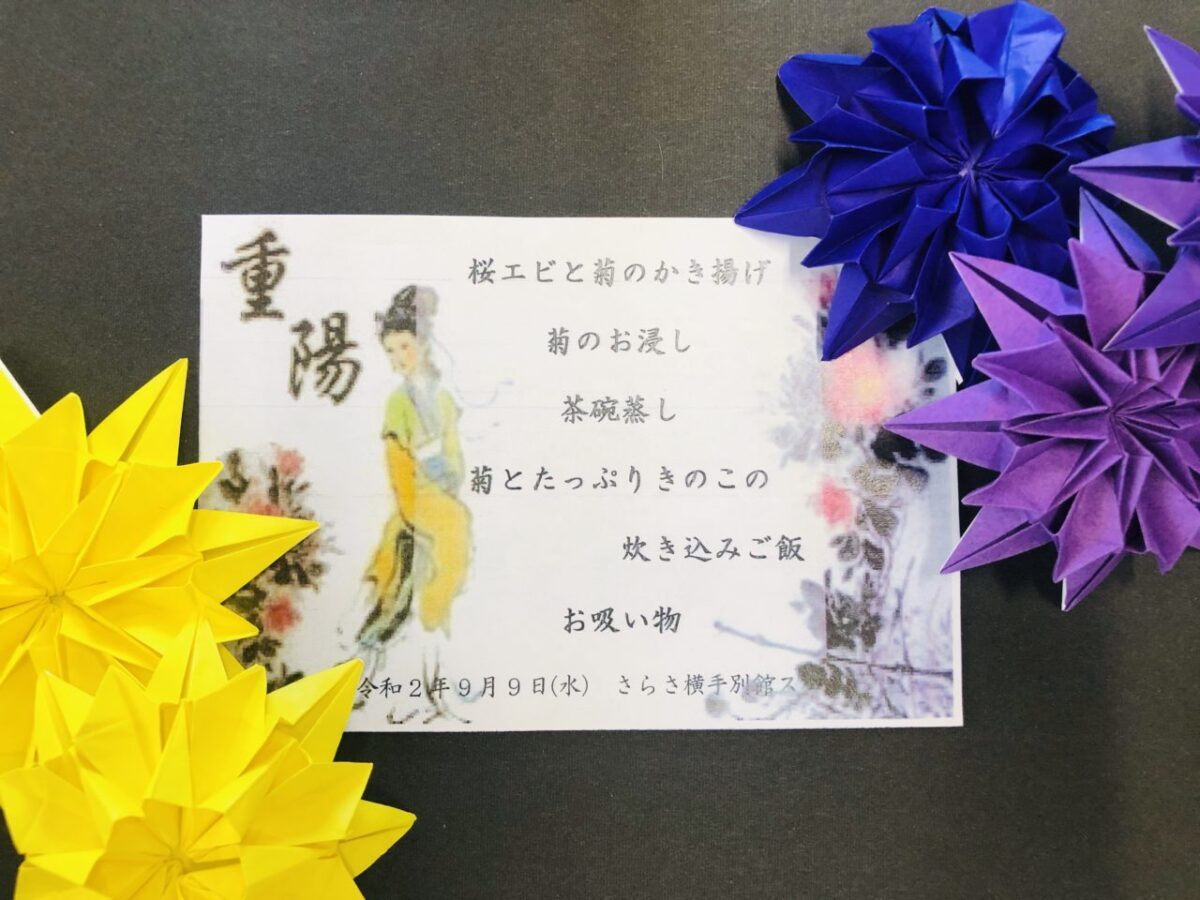 重陽
桜エビと菊のかき揚げ
菊のお浸し
茶碗蒸し
菊とたっぷりきのこの
炊き込みご飯
お吸い物
令和2年9月9日(水) さらさ横手別館ス